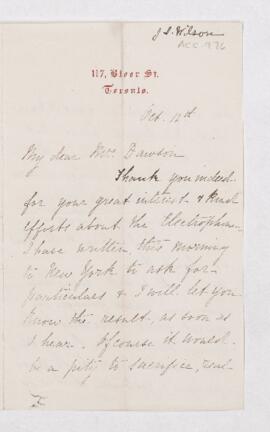 J. S. Wilson
ACC 976
117, Bloor St.
Toronto.
Oct. 12d
My dear Mrs. Dawson
Thank you indeed
for your great interest & kind
efforts about the Electrophone
I have written this morning
to New York to ask for
particulars & I will let you
know the result, as soon as
I hear. Of course it would
be a pity to sacrifice real